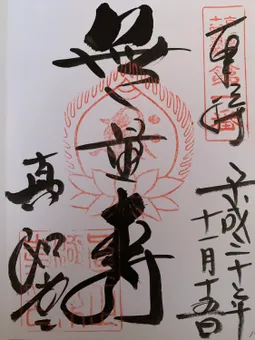 奉拝
平成二十七年
十一月十五日
無量寿
真如堂